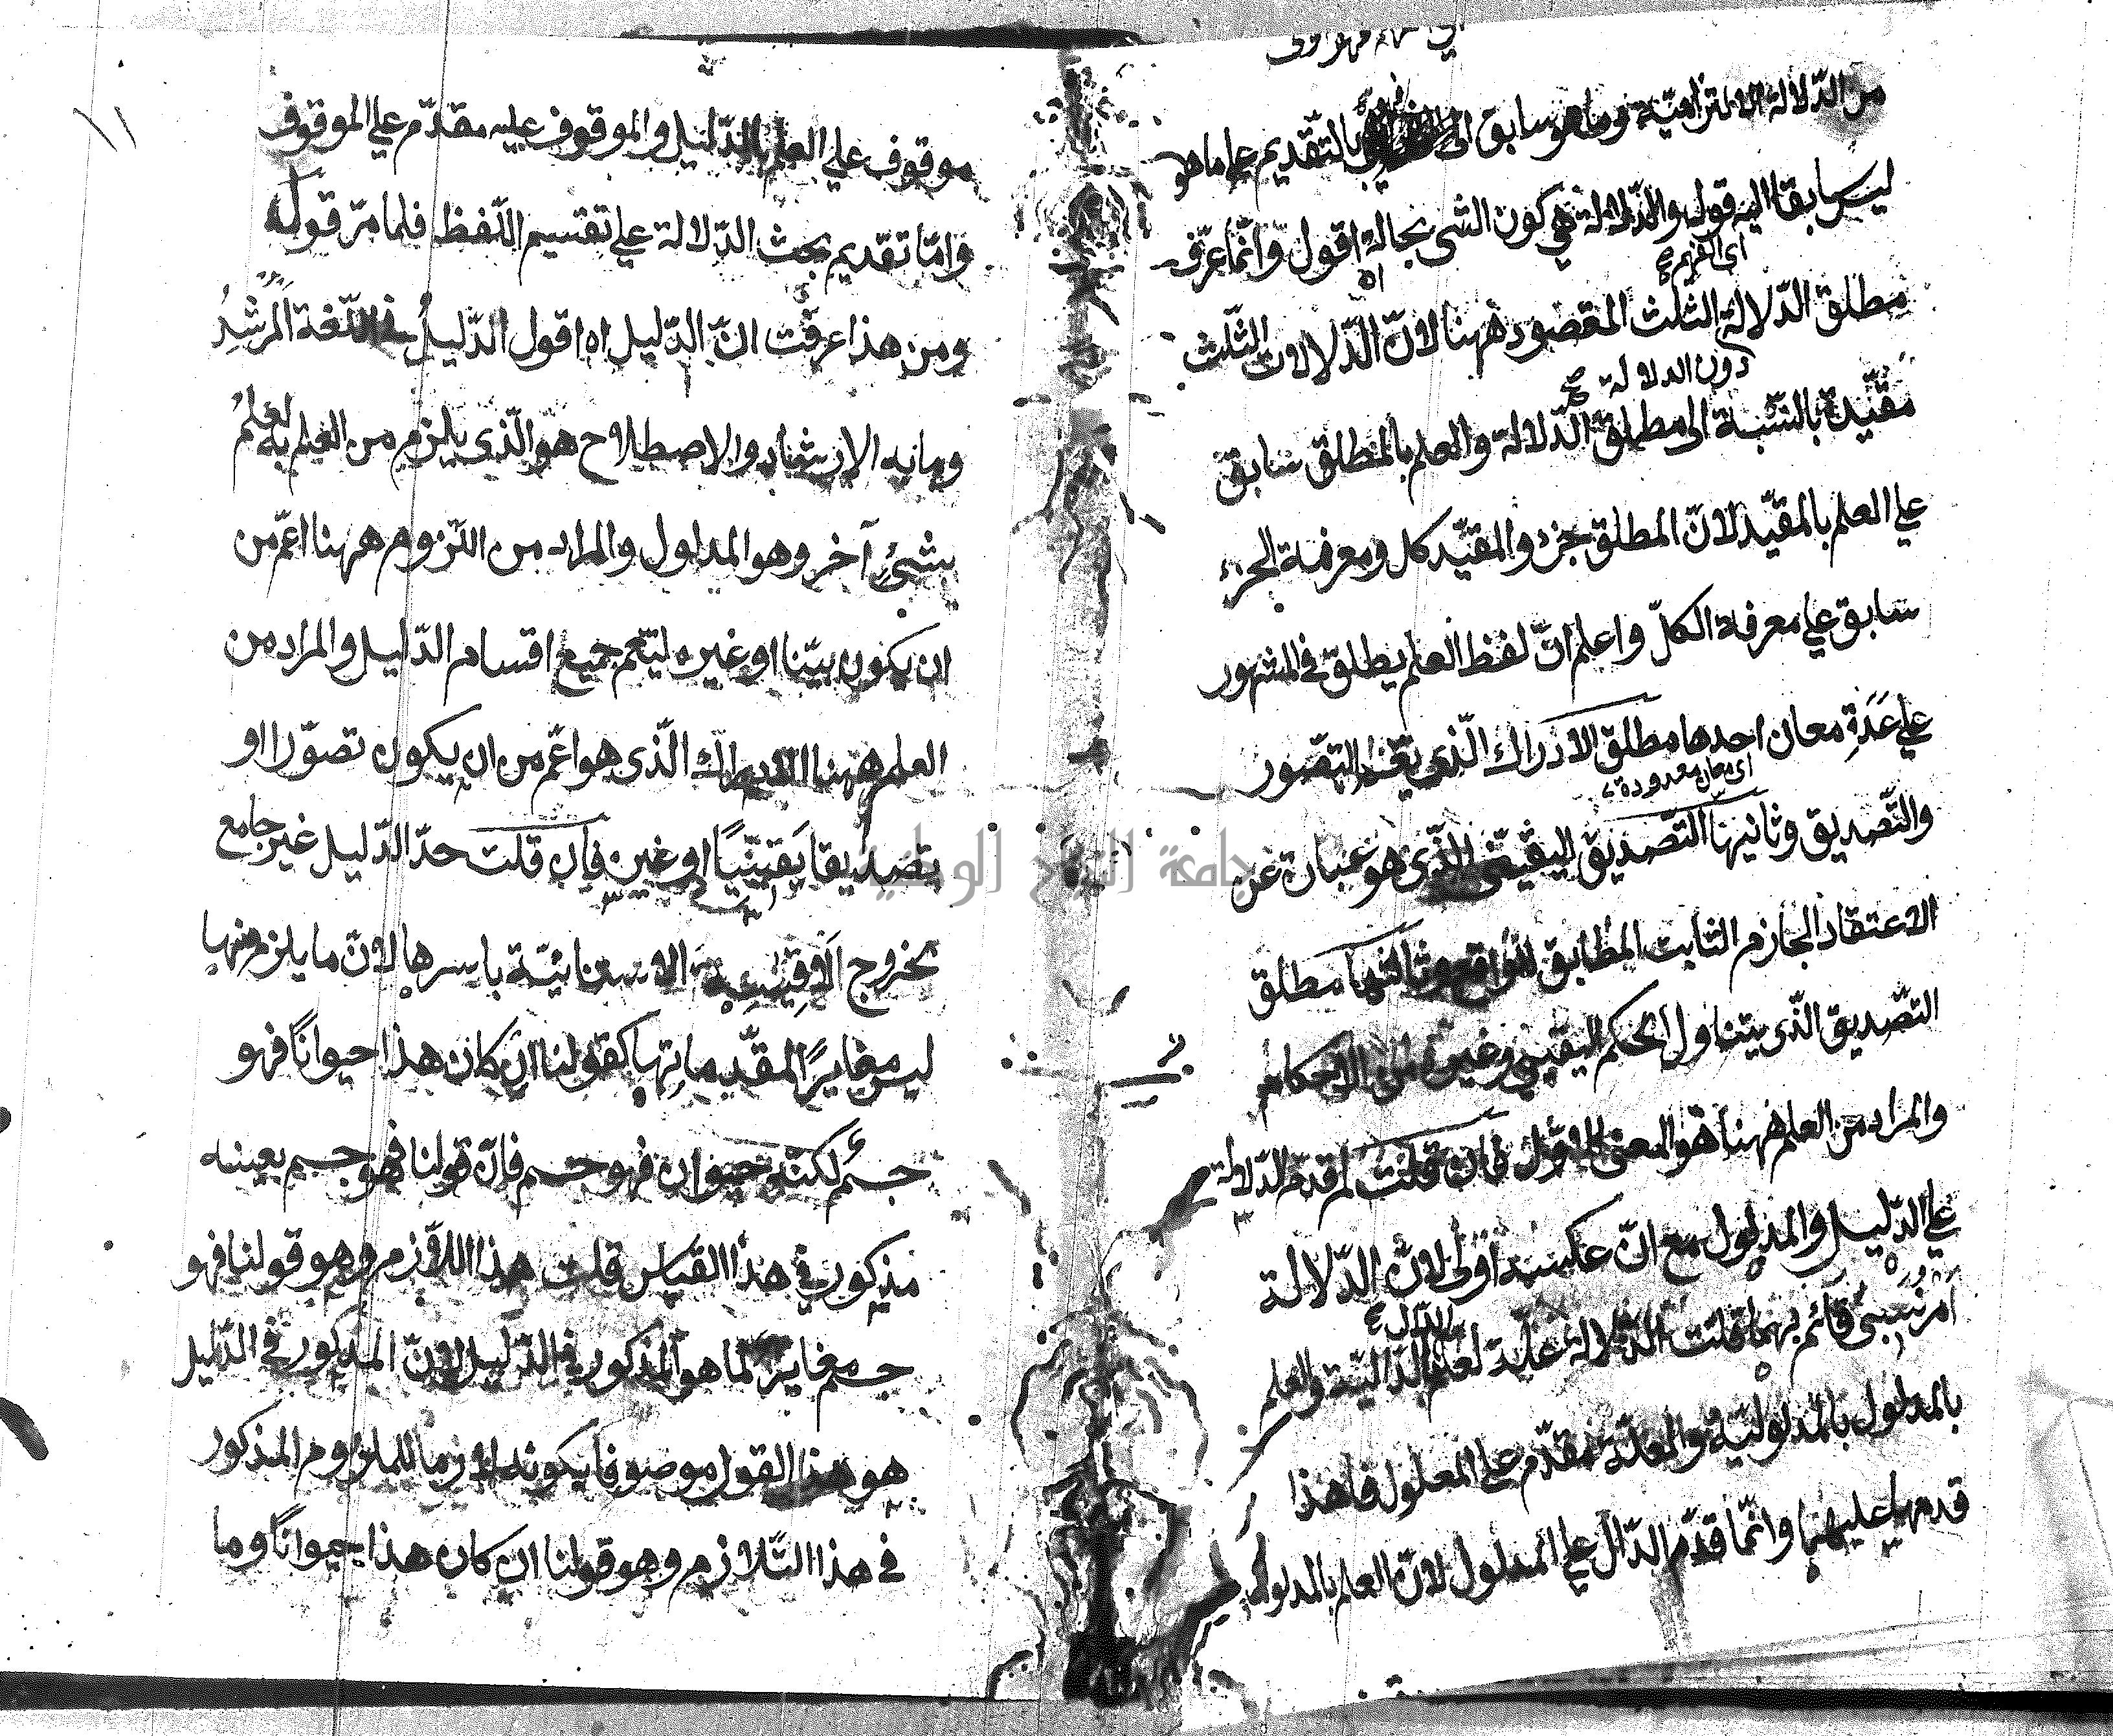 من الدّلالة الالتزاميّة وما هو سابق الى بالتّقديم على ما هو
ليس سابقا اليه قوله والدّلالة هي كون الشئ بحالة اه اقول وانّما عرّف
اى الفهم صح
مطلق الدّلالة الثلث المقصود ههنا لانّ الدّلالات الثّلث
دون الدلالة صح
مقيّدة بالنّسبة الى مطلق الدّلالة والعلم بالمطلق سابق
على العلم بالمقيّد لانّ المطلق جزء والمقيّد كل ومعرفة الجزء
سابق على معرفة الكلّ واعلم انّ لفظ العلم يطلق فى المشهور
على عدّة معان احدها مطلق الادراك الّذى التصّور
اى معان معدودة
والتّصديق وثانيها التّصديق اليقينى الّذى هو عبارة عن
الاعتقاد الجازم الثابت المطابق للواقع وثالثها مطلق
التّصديق الّذى يتناول الحكم اليقينى وغيره من الاحكام
والمراد من العلم ههنا هو المعنى الاوّل فان قلت لم قدم الدّلالة
على الدّليل والمدلول مع انّ عكسه أولى لانّ الدّلالة
امر نسبىّ قائم بهما قلت الدّلالة علّة لعلم بالدّاليّة والعلم
بالمدلول بالمدلوليّة والعلّة مقدّم على المعلول فلهذا
قدمها عليهما وانّما قدّم الدّال على المدلول لانّ العلم بالمدلول
١١
موقوف على العلم بالدّليل والموقوف عليه مقدّم على الموقوف
وامّا تقديم بحث الدّلالة على تقسيم اللّفظ فلما مرّ قوله
ومن هذا عرفت انّ الدّليل اه اقول الدّليل فى اللّغة المرشد
وما به الارشاد والاصطلاح هو الّذى يلزم من العلم به العلم
بشئ آخر وهو المدلول والمراد من اللّزوم ههنا اعمّ من
ان يكون بيّنا او غيره ليتعم جميع اقسام الدّليل والمراد من
العلم ههنا الادراك الّذى هو اعمّ من ان يكون تصوّرا او
تصديقا يقينيّا او غيره فإن قلت حدّ الدّليل غير جامع
بخروج الاقيسة الاستثنائيّة باسرها لانّ ما يلزم منها
ليس مغايرًا لمقدّماتها كقولنا ان كان هذا حيوانًا فهو
جسم لكنّه حيوان فهو جسم فإنّ قولنا فهو جسم بعينه
مذكور فى هذا القياس قلت هذا اللّازم وهو قولنا فهو
جسم مغاير لما هو المذكور فى الدّليل لانّ المذكور فى الدّليل
هو هذا القول موصوفا بكونه لازما للملزوم المذكور
فى هذا التّلازم وهو قولنا ان كان هذا حيوانًا وما
جامعة النجاح الوطنية